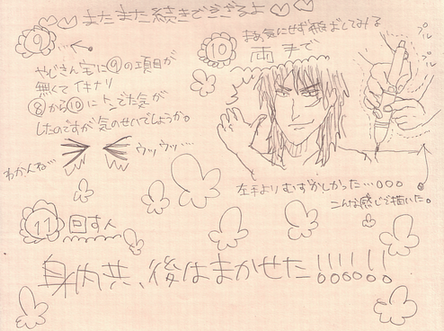 またまた続きでござるよ
⑨
やじさん宅に⑨の項目が
無くてイキナリ
⑧から⑩にトんでた気が
したのですが気のせいでしょうか。
わかんね…
ウッウッ…
⑩
両手で
プル
プル
左手よりむずかしかった…。。。
こんな感じで描いた。
⑪ 回す人
身内共、後はまかせた!!!!!!